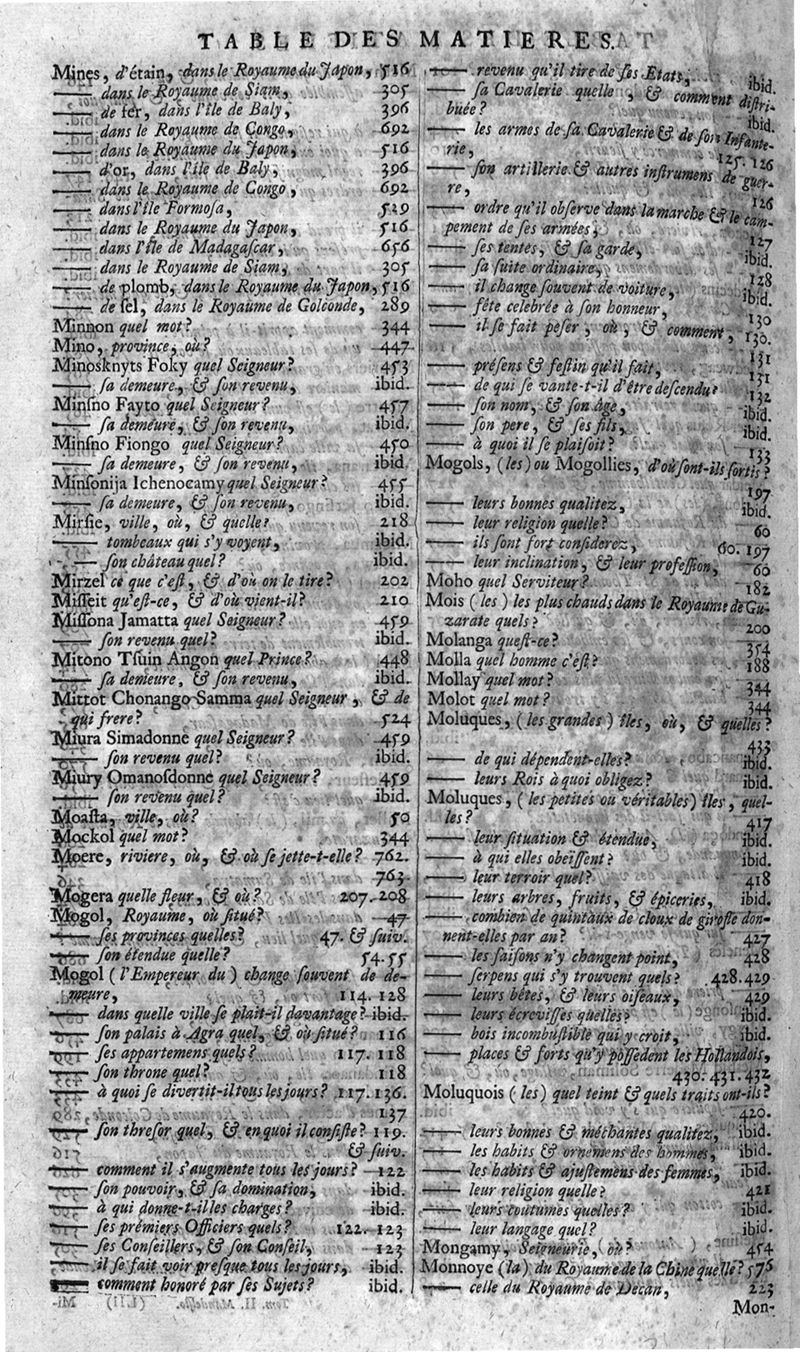 TABLE DES MATIERES.
Mines, d'étain, dans le Royaume du Japon, 516
—— dans le Royaume de Siam, 305
—— de fer, dans l'Ile de Baly, 396
—— dans le Royaume de Congo, 692
—— dans le Royaume du Japon, 516
—— d'or, dans l'Ile de Baly, 396
—— dans le Royaume de Congo, 692
—— dans l'Ile Formosa, 529
—— dans le Royaume du Japon, 516
—— dans l'Ile de Madagascar, 656
—— dans le Royaume de Siam, 305
—— de plomb, dans le Royaume du Japon, 516
—— de sel, dans le Royaume de Golconde, 289
Minnon quel mot? 344
Mino, province, où? 447
Minosknyts Foky quel Seigneur? 453
—— sa demeure, & son revenu, ibid.
Minsno Fayto quel Seigneur? 457
—— sa demeure, & son revenu, ibid.
Minsno Fiongo quel Seigneur? 450
—— sa demeure, & son revenu, ibid.
Minsonija Ichenocamy quel Seigneur? 455
—— sa demeure, & son revenu, ibid.
Mirsie, ville, où, & quelle? 218
—— tombeaux qui s'y voyent, ibid.
—— son château quel? ibid.
Mirzel ce que c'est, & d'où on le tire? 202
Misseit qu'est-ce, & d'où vient-il? 210
Missona Jamatta quel Seigneur? 459
—— son revenu quel? ibid.
Mitono Tsuin Angon quel Prince? 448
—— sa demeure, & son revenu, ibid.
Mittot Chonango Samma quel Seigneur, & de
qui frere? 524
Miura Simadonne quel Seigneur? 459
—— son revenu quel? ibid.
Miury Omanosdonne quel Seigneur? 459
—— son revenu quel? ibid.
Moasta, ville, où? 50
Mockol quel mot? 344
Moere, riviere, où, & où se jette-t-elle? 762.
763
Mogera quelle fleur, & où? 207. 208
Mogol, Royaume, où situé? 47
—— ses provinces quelles? 47. & suiv.
—— son étendue quelle? 54. 55
Mogol (l'Empereur du) change souvent de de-
meure, 114. 128
—— dans quelle ville se plait-il davantage? ibid.
—— son palais à Agra quel, & où situé? 116
—— ses appartemens quels? 117. 118
—— son throne quel? 118
—— à quoi se divertit-il tous les jours? 117. 136.
137
—— son thresor quel, & en quoi il consiste? 119.
& suiv.
—— comment il s'augmente tous les jours? 122
—— son pouvoir, & sa domination, ibid.
—— à qui donne-t-il les charges? ibid.
—— ses prémiers Officiers quels? 122. 123
—— ses Conseillers, & son Conseil, 123
—— il se fait voir presque tous les jours, ibid.
—— comment honoré par ses Sujets? ibid.
—— revenu qu'il tire de ses Etats, ibid.
—— sa Cavalerie quelle, & comment distri-
buée? ibid.
—— les armes de sa Cavalerie & de son Infante-
rie, 125. 126
—— son artillerie & autres instrumens de guer-
re, 126
—— ordre qu'il observe dans la marche & le cam-
pement de ses armées, 127
—— ses tentes, & sa garde, ibid.
—— sa suite ordinaire, 128
—— il change souvent de voiture, ibid.
—— fête celebrée à son honneur, 130
—— il se fait peser, où, & comment, 130.
131
—— présens & festin qu'il fait, 131
—— de qui se vante-t-il d'être descendu? 132
—— son nom, & son âge, ibid.
—— son pere, & ses fils, ibid.
—— à quoi il se plaisoit? 133
Mogols, (les) ou Mogollies, d'où sont-ils sortis?
197
—— leurs bonnes qualitez, ibid.
—— leur religion quelle? 60
—— ils sont fort considerez, 60. 197
—— leur inclination, & leur profession, 60
Moho quel Serviteur? 182
Mois (les) les plus chauds dans le Royaume de Gu-
zarate quels? 200
Molanga quest-ce? 354
Molla quel homme c'est? 188
Mollay quel mot? 344
Molot quel mot? 344
Moluques, (les grandes) Iles, où, & quelles?
433
—— de qui dépendent-elles? ibid.
—— leurs Rois à quoi obligez? ibid.
Moluques, (les petites ou véritables) Iles, quel-
les? 417
—— leur situation & étendue, ibid.
—— à qui elles obeïssent? ibid.
—— leur terroir quel? 418
—— leurs arbres, fruits, & épiceries, ibid.
—— combien de quintaux de cloux de girofle don-
nent-elles par an? 427
—— les saisons n'y changent point, 428
—— serpens qui s'y trouvent quels? 428. 429
—— leurs bêtes, & leurs oiseaux, 429
—— leurs écrevisses quelles? ibid.
—— bois incombustible qui y croit, ibid.
—— places & forts qu'y possedent les Hollandois,
430. 431. 432
Moluquois (les) quel teint & quels traits ont-ils?
420.
—— leurs bonnes & méchantes qualitez, ibid.
—— les habits & ornemens des hommes, ibid.
—— les habits & ajustemens des femmes, ibid.
—— leur religion quelle? 421
—— leurs coutumes quelles? ibid.
—— leur langage quel? ibid.
Mongamy, Seigneurie, où? 454
Monnoye (la) du Royaume de la Chine quelle? 576
—— celle du Royaume de Decan, 223
Mon-